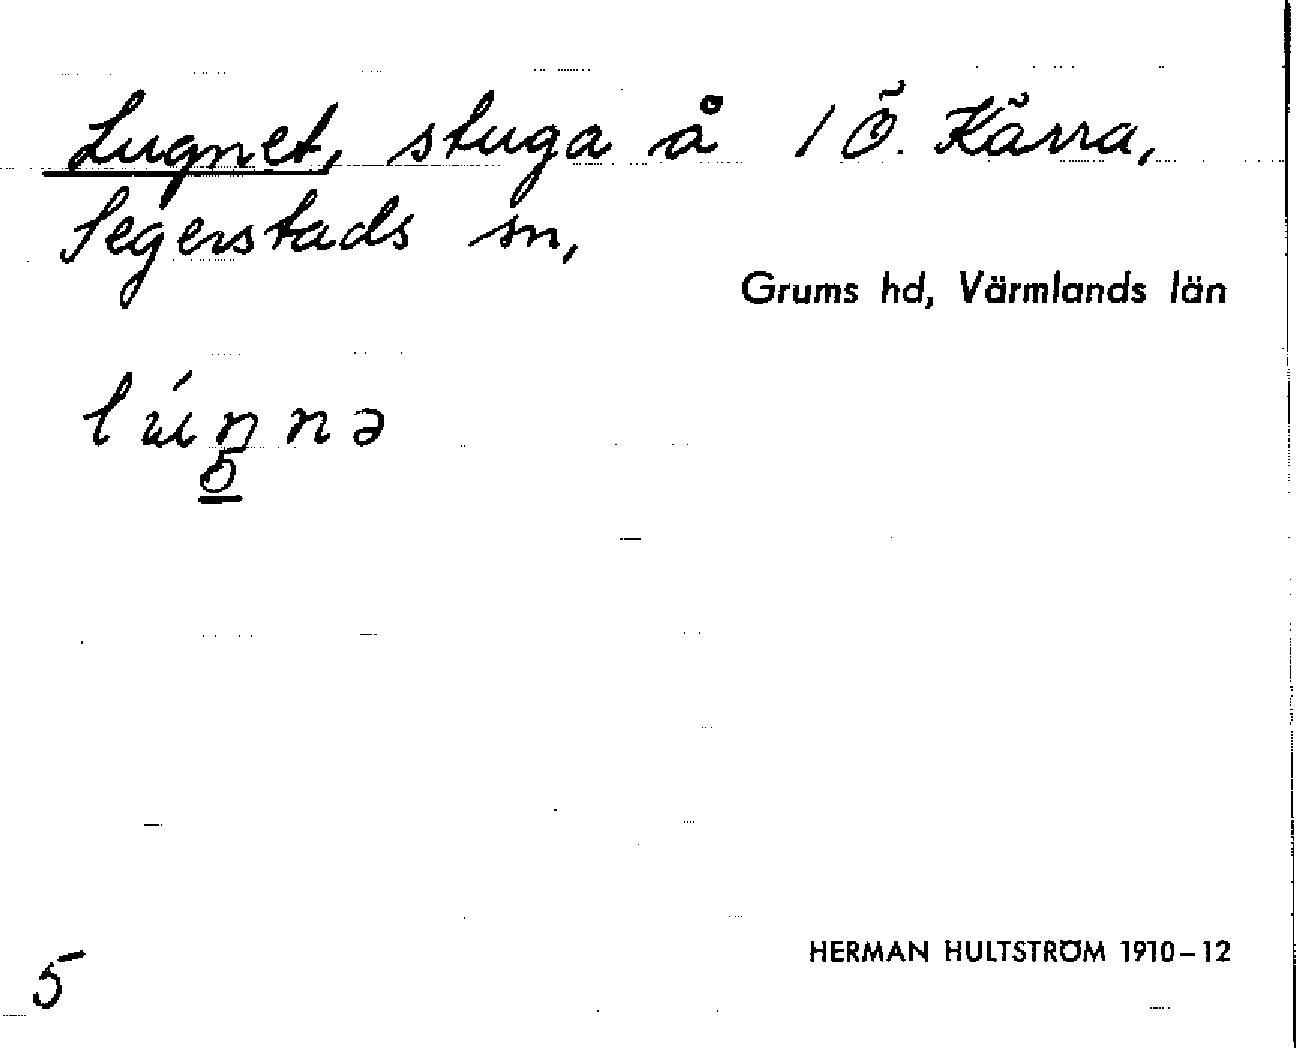 Lugnet, stuga å 1 Ö. Kärra,
Segerstads sn,
Grums hd, Värmlands län
lúŋnə
5
5
HERMAN HULTSTRÖM 1910–12